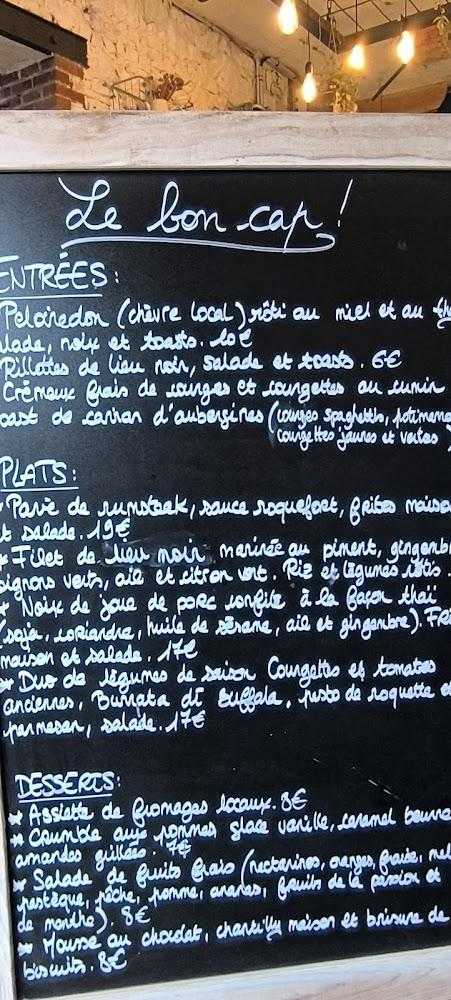 Le bon cap!
ENTRÉES:
Peloiredon (chèvre local) rôti au miel et au
alade, noix et toasts. 10€
Rillettes de lieu noir, salade et toasts. 6€
Crémeux frais de courges et courgettes au cumin
oast de caviar d'aubergines (courges spaghettis, potimarron
courgettes jaunes et vertes)
PLATS:
* Pavé de rumsteak, sauce roquefort, frites maison
t salade. 19€
* Filet de lieu noir marinée au piment, gingembr
oignons verts, ail et citron vert. Riz et légumes rôtis.
* Noix de joue de porc confite à la façon thaï
(soja, coriandre, huile de sésame, ail et gingembre). FRI
maison et salade. 17€
* Duo de légumes de saison Courgettes et tomates
anciennes, Burrata di Buffala, pesto de roquette e
parmesan, salade. 17€
DESSERTS:
* Assiette de fromages locaux. 8€
* Crumble aux pommes glace vanille, caramel beurre
amandes grillées. 7€
* Salade de fruits frais (nectarines, oranges, fraise, mel
pastèque, pêche, pomme, ananas, fruits de la passion et
de menthe). 8€
* Mousse au chocolat, chantilly maison et brisure de
biscuits. 8€